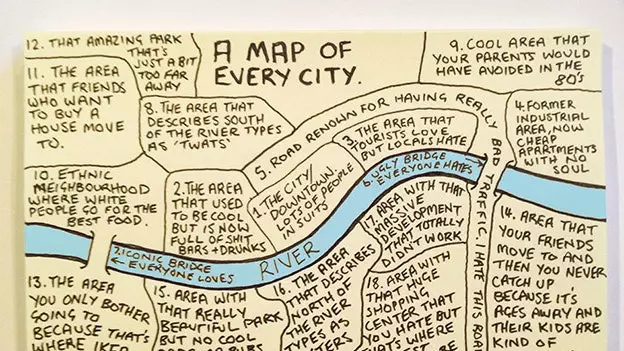 A MAP OF
EVERY CITY.
12. THAT AMAZING PARK
THAT'S
JUST A BIT
TOO FAR
AWAY
9. COOL AREA THAT
YOUR PARENTS WOULD
HAVE AVOIDED IN THE
80'S
11. THE AREA
THAT FRIENDS
WHO WANT
TO BUY A
HOUSE MOVE
TO.
8. THE AREA THAT
DESCRIBES SOUTH
OF THE RIVER TYPES
AS 'TWATS'
5. ROAD RENOWN FOR HAVING REALLY BAD TRAFFIC. I HATE THIS ROAD
3. THE AREA THAT
TOURISTS LOVE
BUT LOCALS HATE
4. FORMER
INDUSTRIAL
AREA, NOW
CHEAP
APARTMENTS
WITH NO
SOUL
10. ETHNIC
NEIGHBOURHOOD
WHERE WHITE
PEOPLE GO FOR
THE BEST FOOD.
2. THE AREA
THAT USED
TO BE COOL
BUT IS NOW
FULL OF SHIT
BARS + DRUNKS
1. THE CITY/
DOWNTOWN
LOTS OF PEOPLE
IN SUITS
6. UGLY BRIDGE
EVERYONE HATES
7. ICONIC BRIDGE
EVERYONE LOVES
RIVER
17. AREA WITH THAT
MASSIVE
DEVELOPMENT
THAT TOTALLY
DIDN'T WORK
14. AREA THAT
YOUR FRIENDS
MOVE TO AND
THEN YOU NEVER
CATCH UP
BECAUSE IT'S
AGES AWAY AND
THEIR KIDS ARE
KIND OF
13. THE AREA
YOU ONLY BOTHER
GOING TO
BECAUSE THAT'S
WHERE IKEA
15. AREA WITH
THAT REALLY
BEAUTIFUL PARK
BUT NO COOL
16. THE AREA
THAT DESCRIBES
NORTH OF
THE RIVER
TYPES AS
18. AREA WITH
THAT HUGE
SHOPPING
CENTER THAT
YOU HATE BUT
THAT'S WHERE